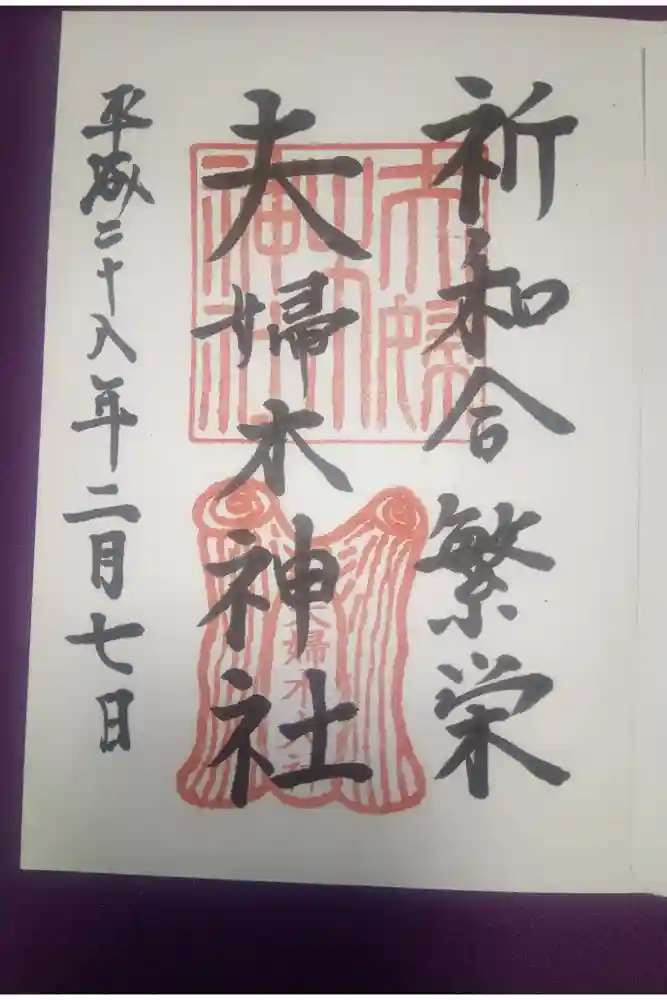 祈和合繁栄
夫婦木神社
平成二十八年二月七日
夫婦木神社
夫婦木大神